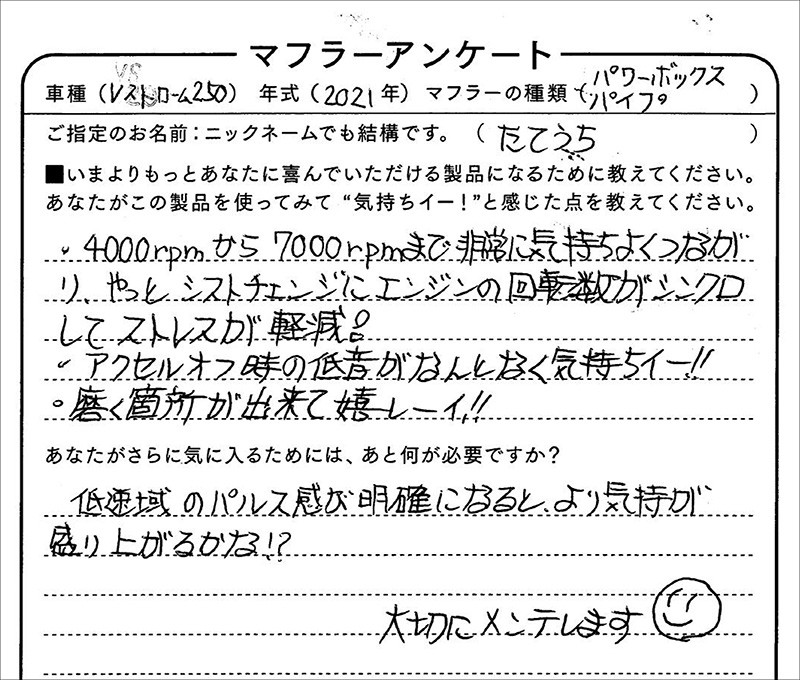 マフラーアンケート
車種（Vストローム250） 年式（2021年） マフラーの種類（パワーボックスパイプ。）
ご指定のお名前：ニックネームでも結構です。（たてうち）
■いまよりもっとあなたに喜んでいただける製品になるために教えてください。
あなたがこの製品を使ってみて“気持ちイー！”と感じた点を教えてください。
。4000rpmから7000rpmまで非常に気持ちよくつなが
り、やっとシストチェンジにエンジンの回転数がシンクロ
してストレスが軽減。
。アクセルオフ時の低音がなんとなく気持ちイー!!
。磨く箇所が出来て嬉レーイ!!
あなたがさらに気に入るためには、あと何が必要ですか？
低速域のパルス感が明確になると、より気持が
盛り上がるかな!?
大切にメンテします